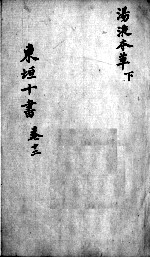 湯液本草 下
東垣十書 卷十三